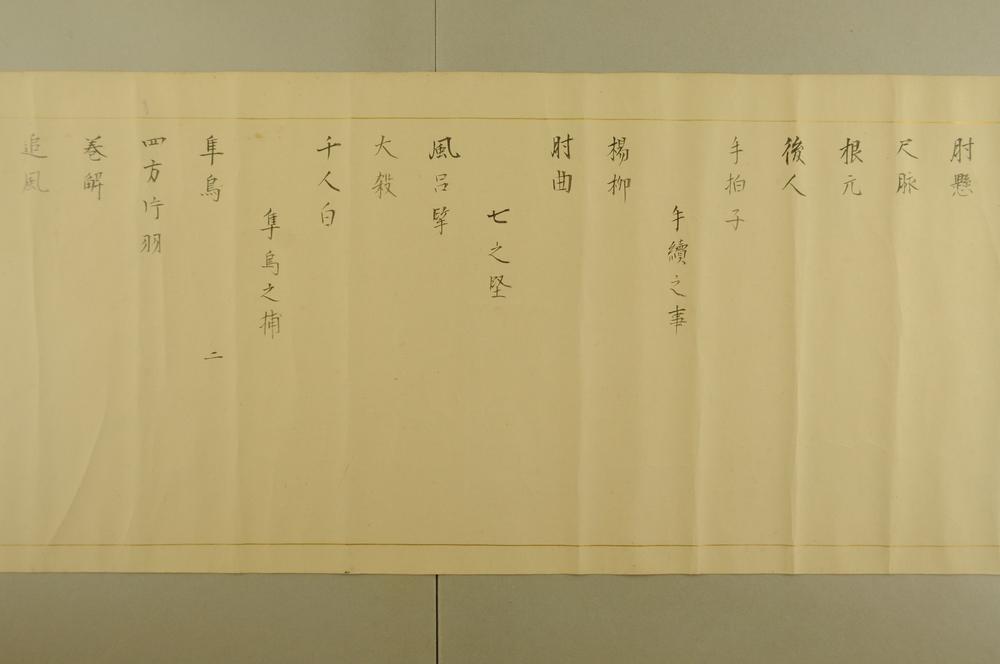 肘懸
尺脈
根元
後人
手拍子
手續之事
楊柳
肘曲
七之堅
風呂挚
大殺
千人白
隼鳥之捕
隼鳥 二
四方片羽
巻解
追風